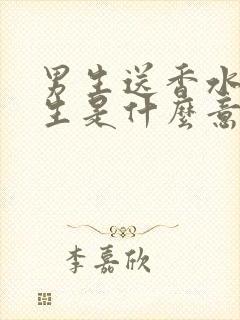 男生送香水
生是什麼意
李嘉欣